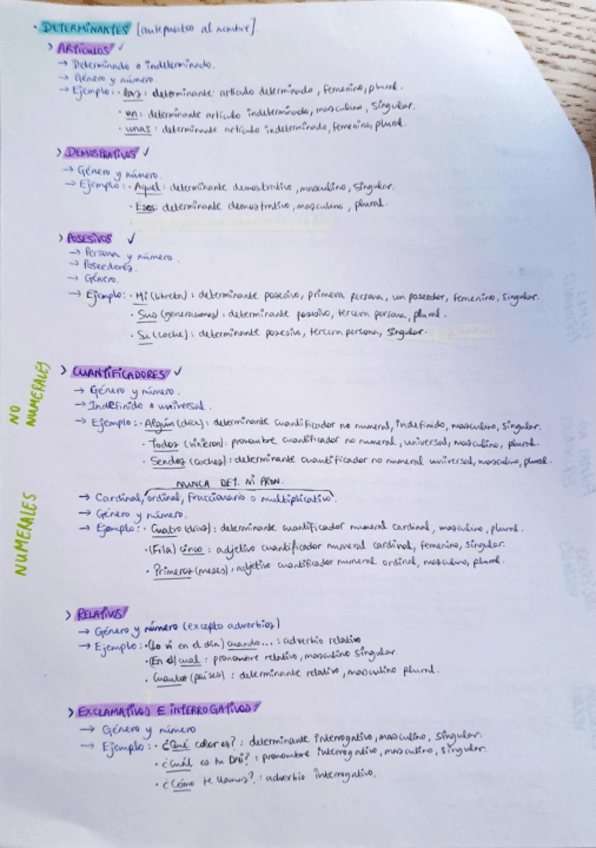 • DETERMINANTES [antepuesto al nombre].
> ARTÍCULOS ✓
→ Determinado o indeterminado.
→ Género y número.
→ Ejemplo: · las: determinante artículo determinado, femenino, plural.
· un: determinante artículo indeterminado, masculino, singular.
· unas: determinante artículo indeterminado, femenino, plural.
> DEMOSTRATIVOS ✓
→ Género y número.
→ Ejemplo: · Aquel: determinante demostrativo, masculino, singular.
· Esos: determinante demostrativo, masculino, plural.
> POSESIVOS ✓
→ Persona y número.
→ Poseedores.
→ Género.
→ Ejemplo: · Mi (libreta): determinante posesivo, primera persona, un poseedor, femenino, singular.
· Sus (generaciones): determinante posesivo, tercera persona, plural.
· Su (coche): determinante posesivo, tercera persona, singular.
> CUANTIFICADORES ✓
NO NUMERALES
→ Género y número.
→ Indefinido o universal.
→ Ejemplo: · Algún (día): determinante cuantificador no numeral, indefinido, masculino, singular.
· Todos (vinieron): pronombre cuantificador no numeral, universal, masculino, plural.
· Sendos (coches): determinante cuantificador no numeral universal, masculino, plural.
NUNCA DET. NI PRON.
NUMERALES
→ Cardinal, ordinal, fraccionario o multiplicativo.
→ Género y número.
→ Ejemplo: · Cuatro (días): determinante cuantificador numeral cardinal, masculino, plural.
· (Fila) cinco: adjetivo cuantificador numeral cardinal, femenino, singular.
· Primeros (meses): adjetivo cuantificador numeral ordinal, masculino, plural.
> RELATIVOS
→ Género y número (excepto adverbios)
→ Ejemplo: · (Lo vi en el día) cuando...: adverbio relativo
· (En el) cual: pronombre relativo, masculino singular.
· Cuantos (países): determinante relativo, masculino plural.
> EXCLAMATIVOS E INTERROGATIVOS
→ Género y número
→ Ejemplo: · ¿Qué color es?: determinante interrogativo, masculino, singular.
· ¿Cuál es tu DNI?: pronombre interrogativo, masculino, singular.
· ¿Cómo te llamas?: adverbio interrogativo.